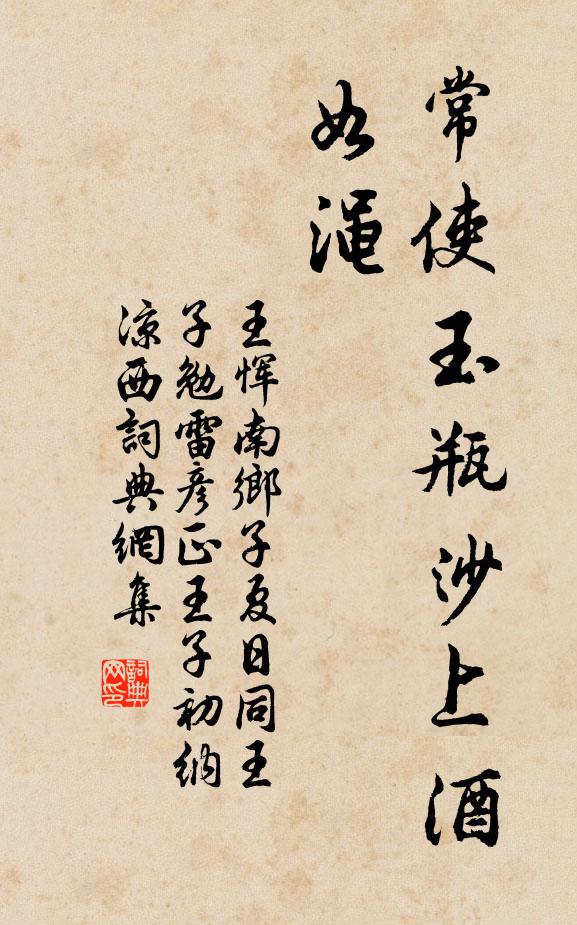 常使玉瓶沙上酒
如渑
王恽南鄉子夏日同王
子勉雷彦正王子初納
凉西詞典網集
詞典
网印